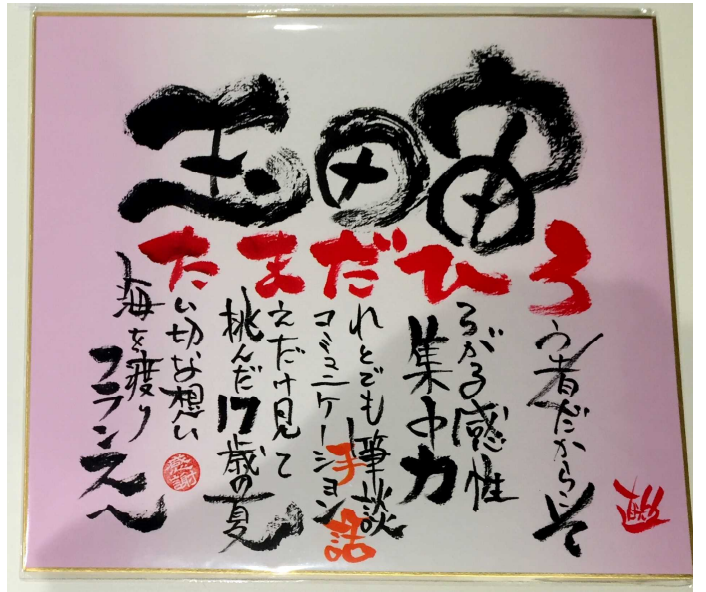 玉田宙
たまだひろ
う者だからこそ
ろがる感性
集中力
れとでも筆談
手話
コミュニケーション
えだけ見て
挑んだ17歳の夏
い切な想い
海を渡り
フランスへ
感謝